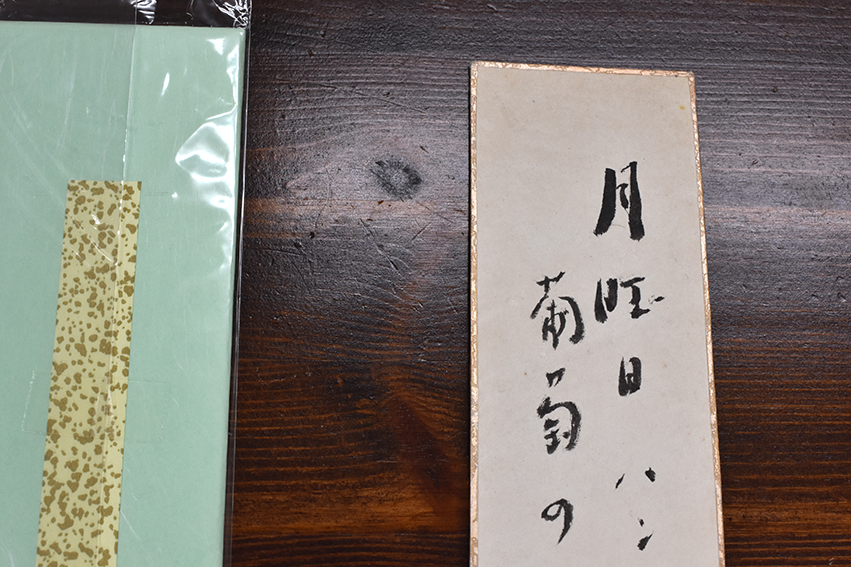 月曜日ハン
葡萄の